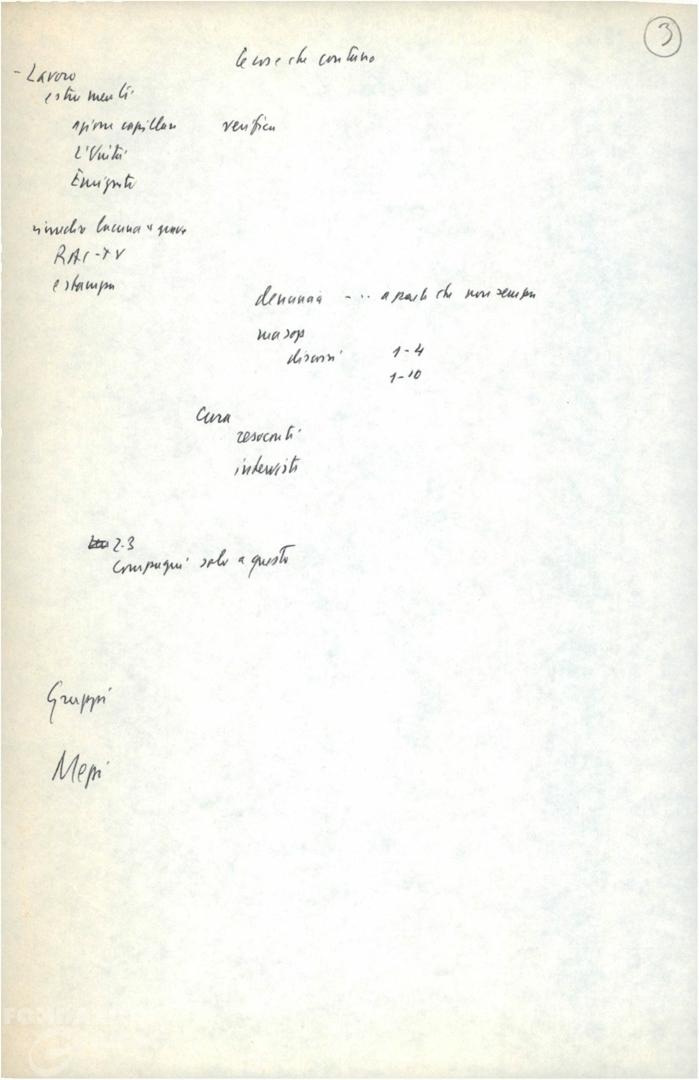 3
le cose che contano
- Lavoro
e strumenti
azione capillare verifica
L'Unità
Emigrato
lacuna + grave
RAI-TV
e stampa
denuncia - .. a parte che non sempre
ma sop
discorsi 1-4
1-10
Cura
resoconti
interviste
2-3
compagni solo a questo
Gruppi